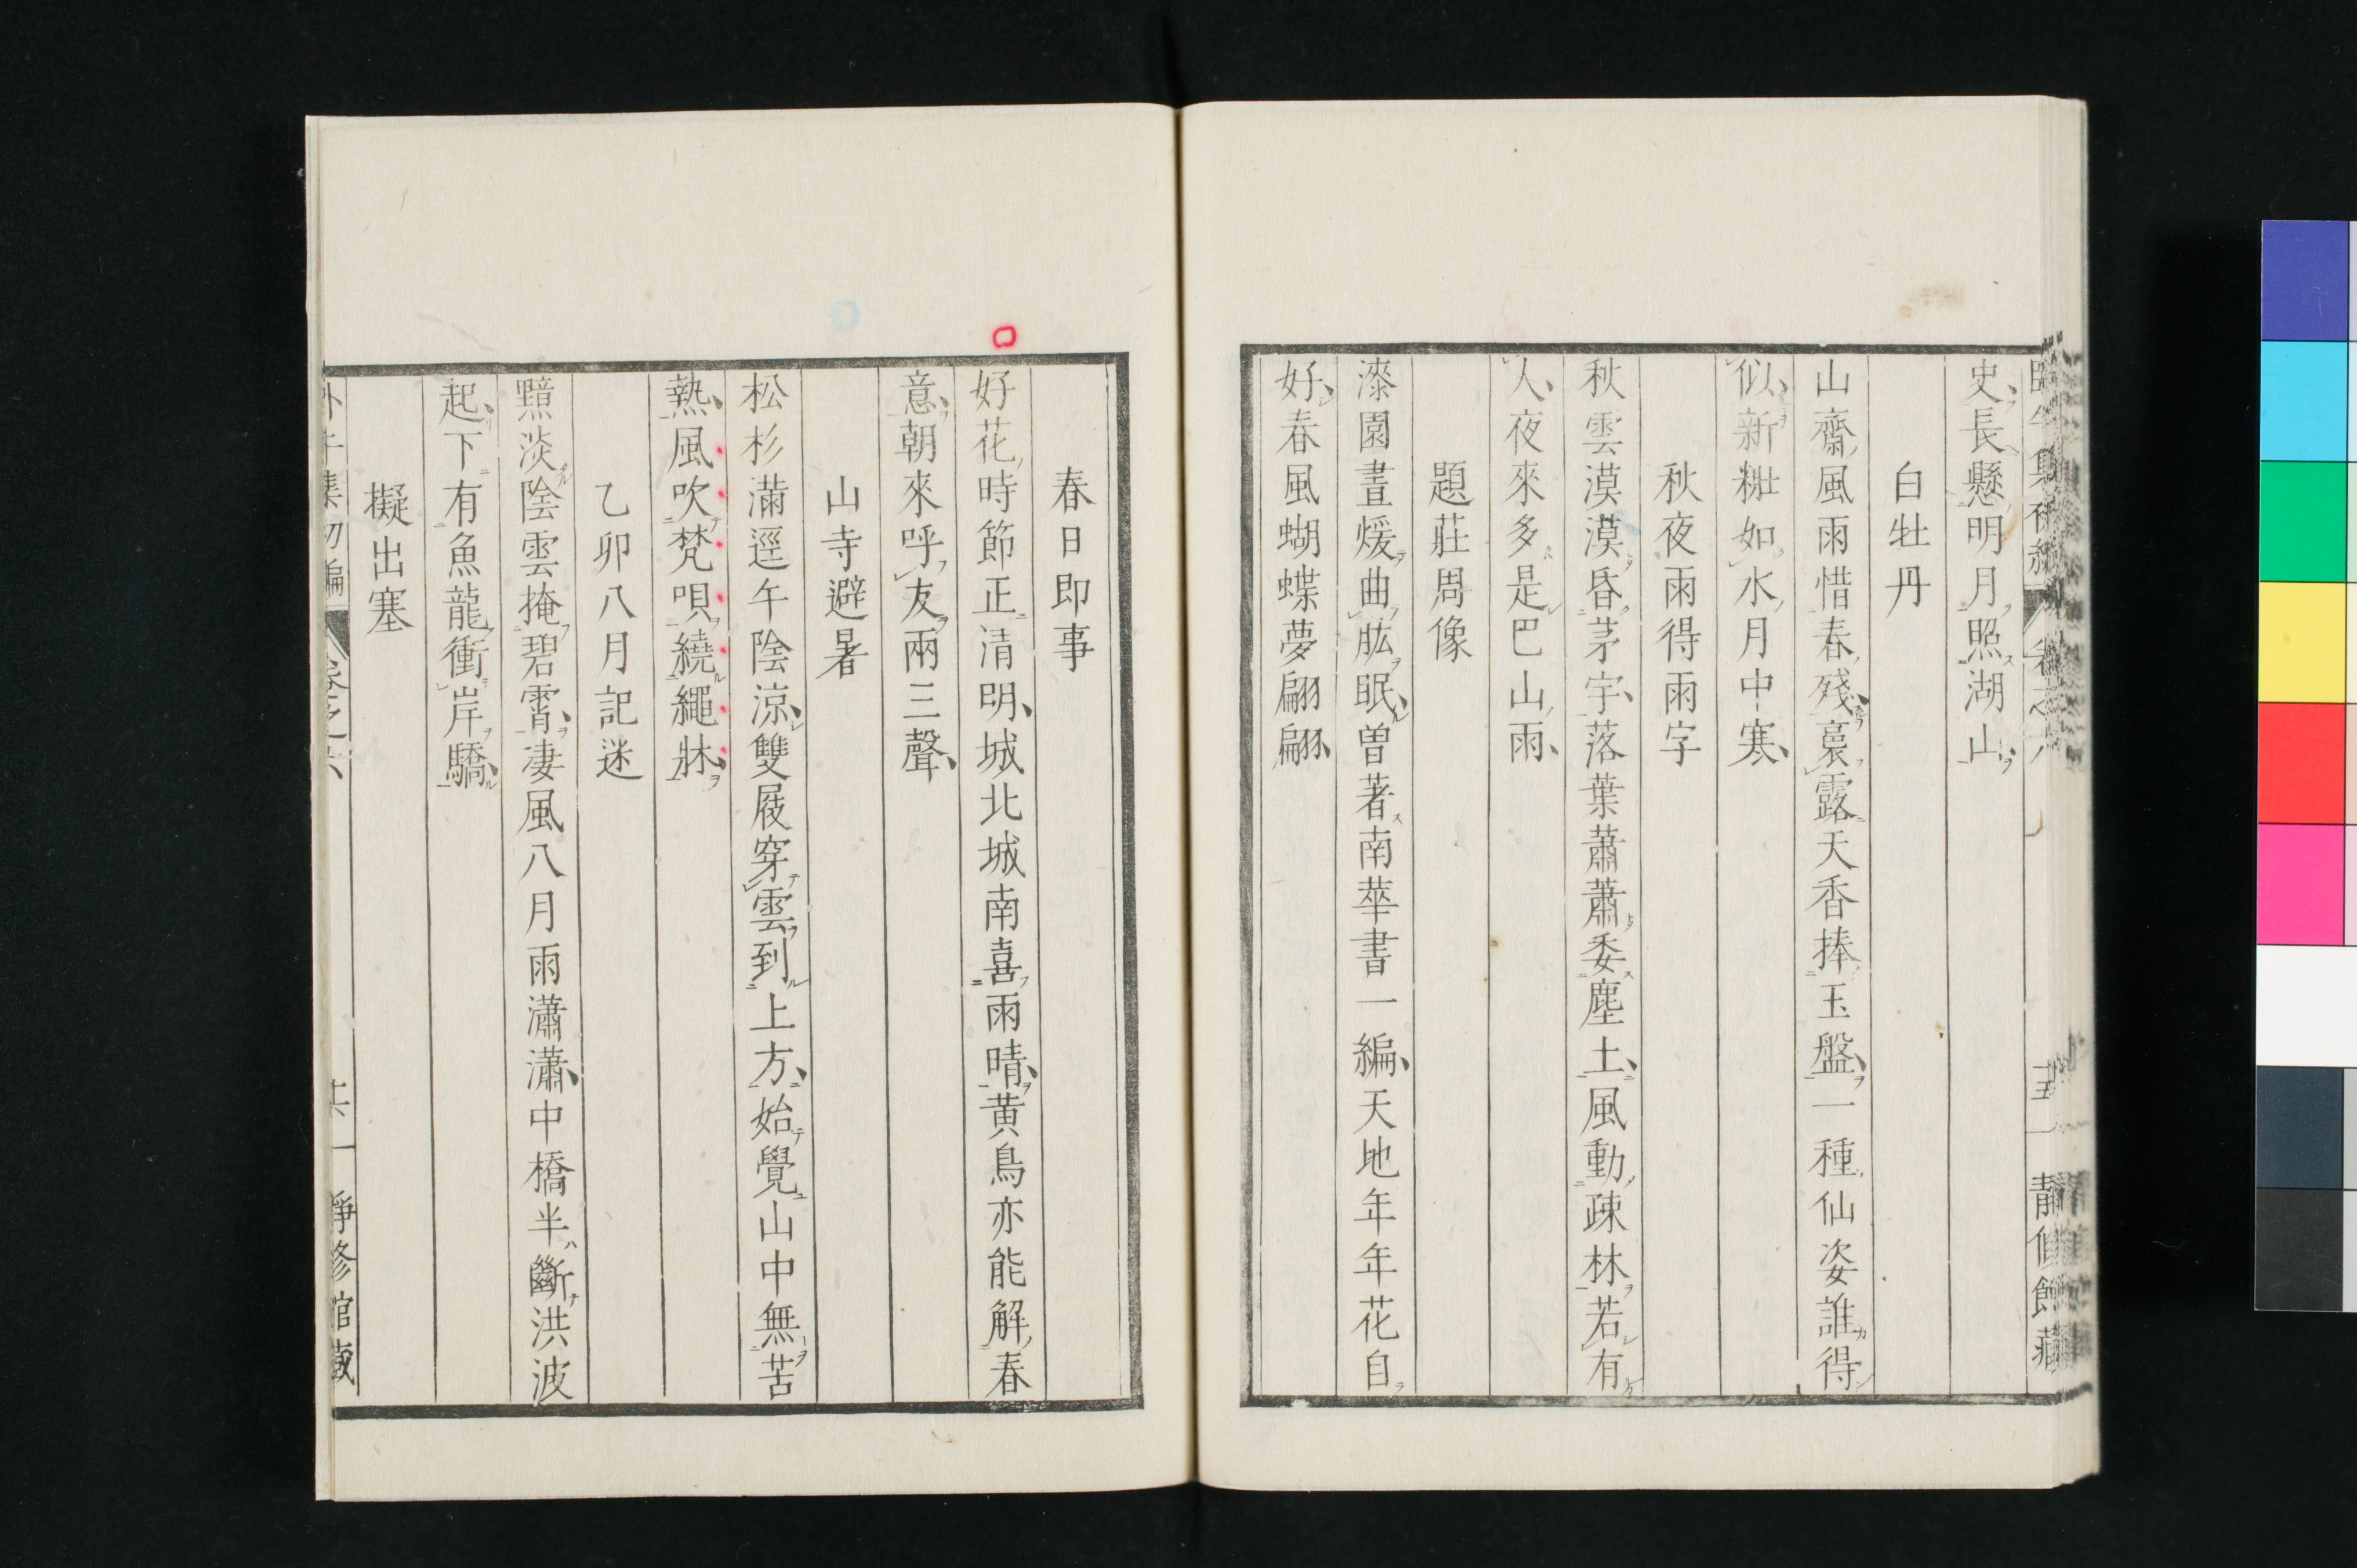 史長懸明月照湖山
白牡丹
山齋風雨惜春殘裛露天香捧玉盤一種仙姿誰得
似新粧如水月中寒
秋夜雨得雨字
秋雲漠漠昏茅宇落葉蕭蕭委塵土風動疎林若有
人夜來多是巴山雨
題莊周像
漆園晝煖曲肱眠曾著南華書一編天地年年花自
好春風蝴蝶夢翩翩
春日即事
好花時節正清明城北城南喜雨晴黄鳥亦能解春
意朝來呼友兩三聲
山寺避暑
松杉滿逕午陰涼雙屐穿雲到上方始覺山中無苦
熱風吹梵唄繞繩牀
乙卯八月記迷
黯淡陰雲掩碧霄凄風八月雨瀟瀟中橋半斷洪波
起下有魚龍衝岸驕
擬出塞